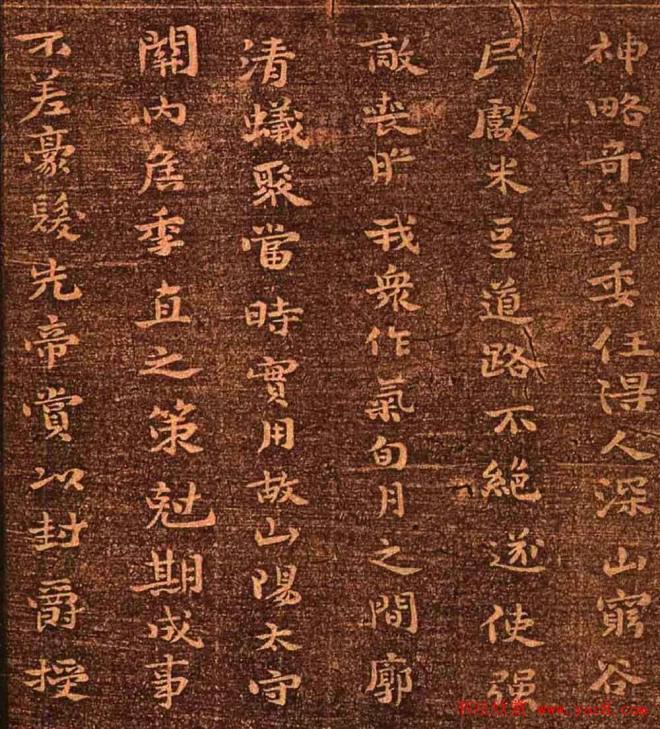 神略奇計委任得人深山窮谷
民獻米豆道路不絕遂使强
敵喪膽我衆作氣旬月之間廓
清蟻聚當時實用故山陽太守
關內侯季直之策剋期成事
不差豪髮先帝賞以封爵授
www.yac8.com